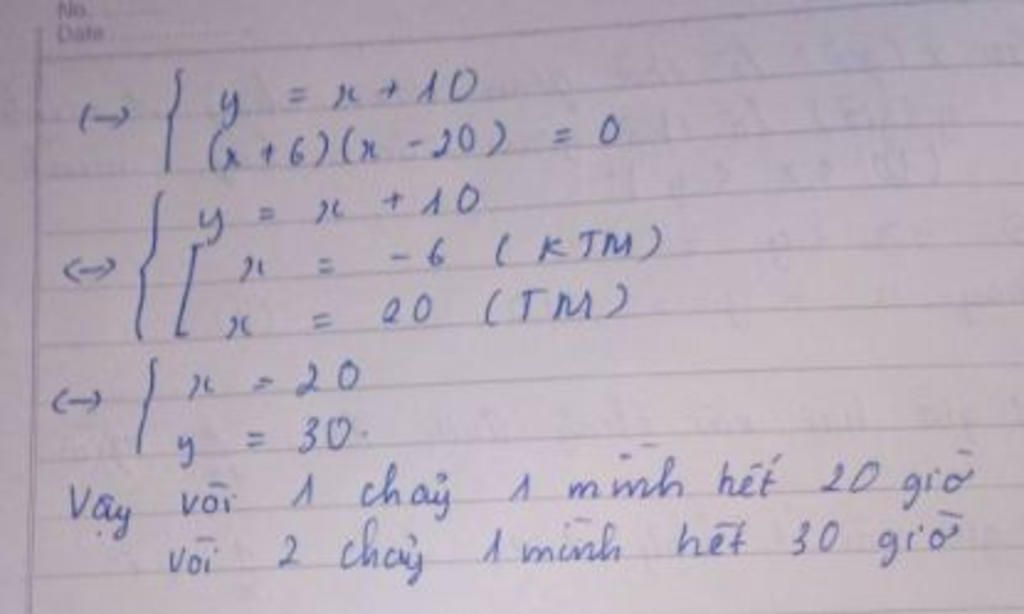 No.
Date
<-> { y = x + 10
(x + 6)(x - 20) = 0
<-> { y = x + 10
[ x = -6 (KTM)
x = 20 (TM)
<-> { x = 20
y = 30.
Vậy vòi 1 chảy 1 mình hết 20 giờ
vòi 2 chảy 1 mình hết 30 giờ